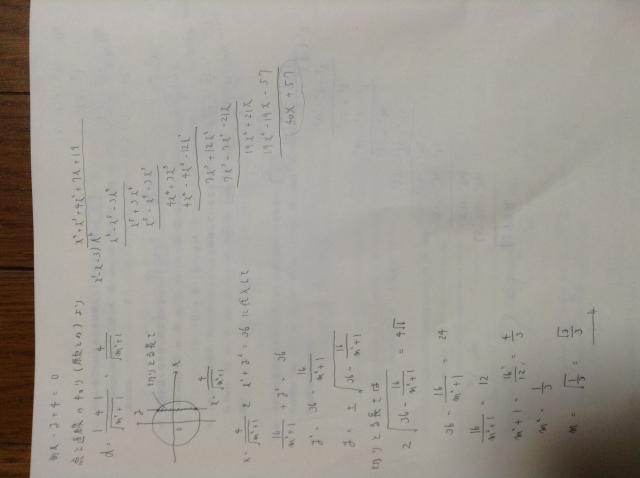 mx - y + 4 = 0
点と直線のキョリ(原点との)より
d = |4| / √(m²+1) = 4 / √(m²+1)
y
切りとる長さ
x
x = 4 / √(m²+1)
x = 4 / √(m²+1) を x² + y² = 36 に代入して
16 / (m²+1) + y² = 36
y² = 36 - 16 / (m²+1)
y = ± √(36 - 16 / (m²+1))
切りとる長さは
2 √(36 - 16 / (m²+1)) = 4√6
36 - 16 / (m²+1) = 24
16 / (m²+1) = 12
m² + 1 = 16 / 12 = 4 / 3
m² = 1 / 3
m = √(1/3) = √3 / 3
x⁴ + x³ + 4x² + 7x + 19
x² - x - 3 ) x⁶
x⁶ - x⁵ - 3x⁴
x⁵ + 3x⁴
x⁵ - x⁴ - 3x³
4x⁴ + 3x³
4x⁴ - 4x³ - 12x²
7x³ + 12x²
7x³ - 7x² - 21x
19x² + 21x
19x² - 19x - 57
40x + 57